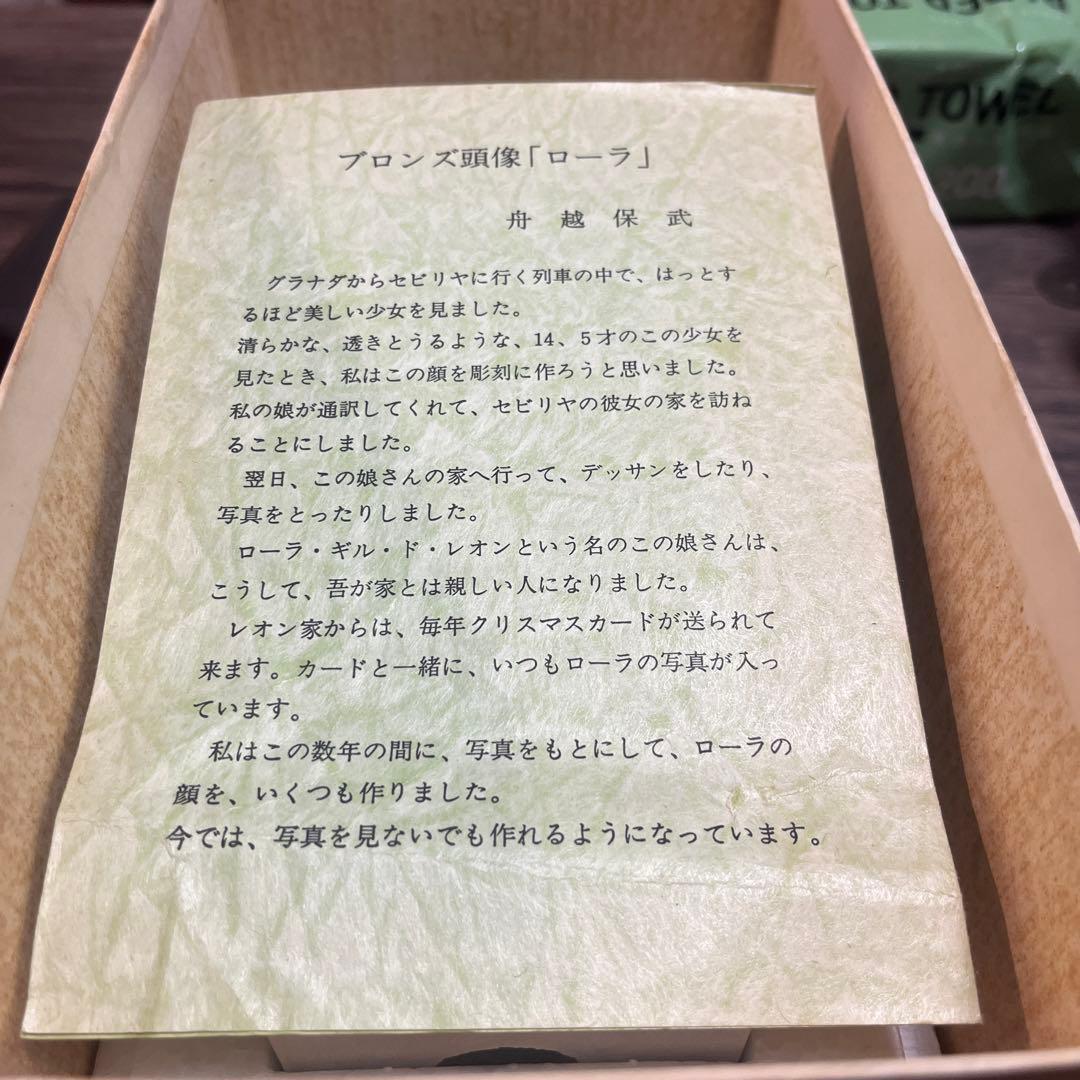 ブロンズ頭像「ローラ」
舟越保武
グラナダからセビリヤに行く列車の中で、はっとす
るほど美しい少女を見ました。
清らかな、透きとうるような、14、5才のこの少女を
見たとき、私はこの顔を彫刻に作ろうと思いました。
私の娘が通訳してくれて、セビリヤの彼女の家を訪ね
ることにしました。
翌日、この娘さんの家へ行って、デッサンをしたり、
写真をとったりしました。
ローラ・ギル・ド・レオンという名のこの娘さんは、
こうして、吾が家とは親しい人になりました。
レオン家からは、毎年クリスマスカードが送られて
来ます。カードと一緒に、いつもローラの写真が入っ
ています。
私はこの数年の間に、写真をもとにして、ローラの
顔を、いくつも作りました。
今では、写真を見ないでも作れるようになっています。
TOWEL